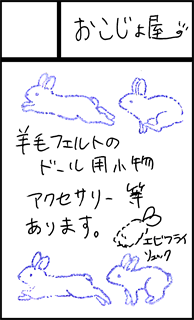 おこじょ屋
羊毛フェルトの
ドール用小物
アクセサリー 等
あります。
エビフライ
リュック